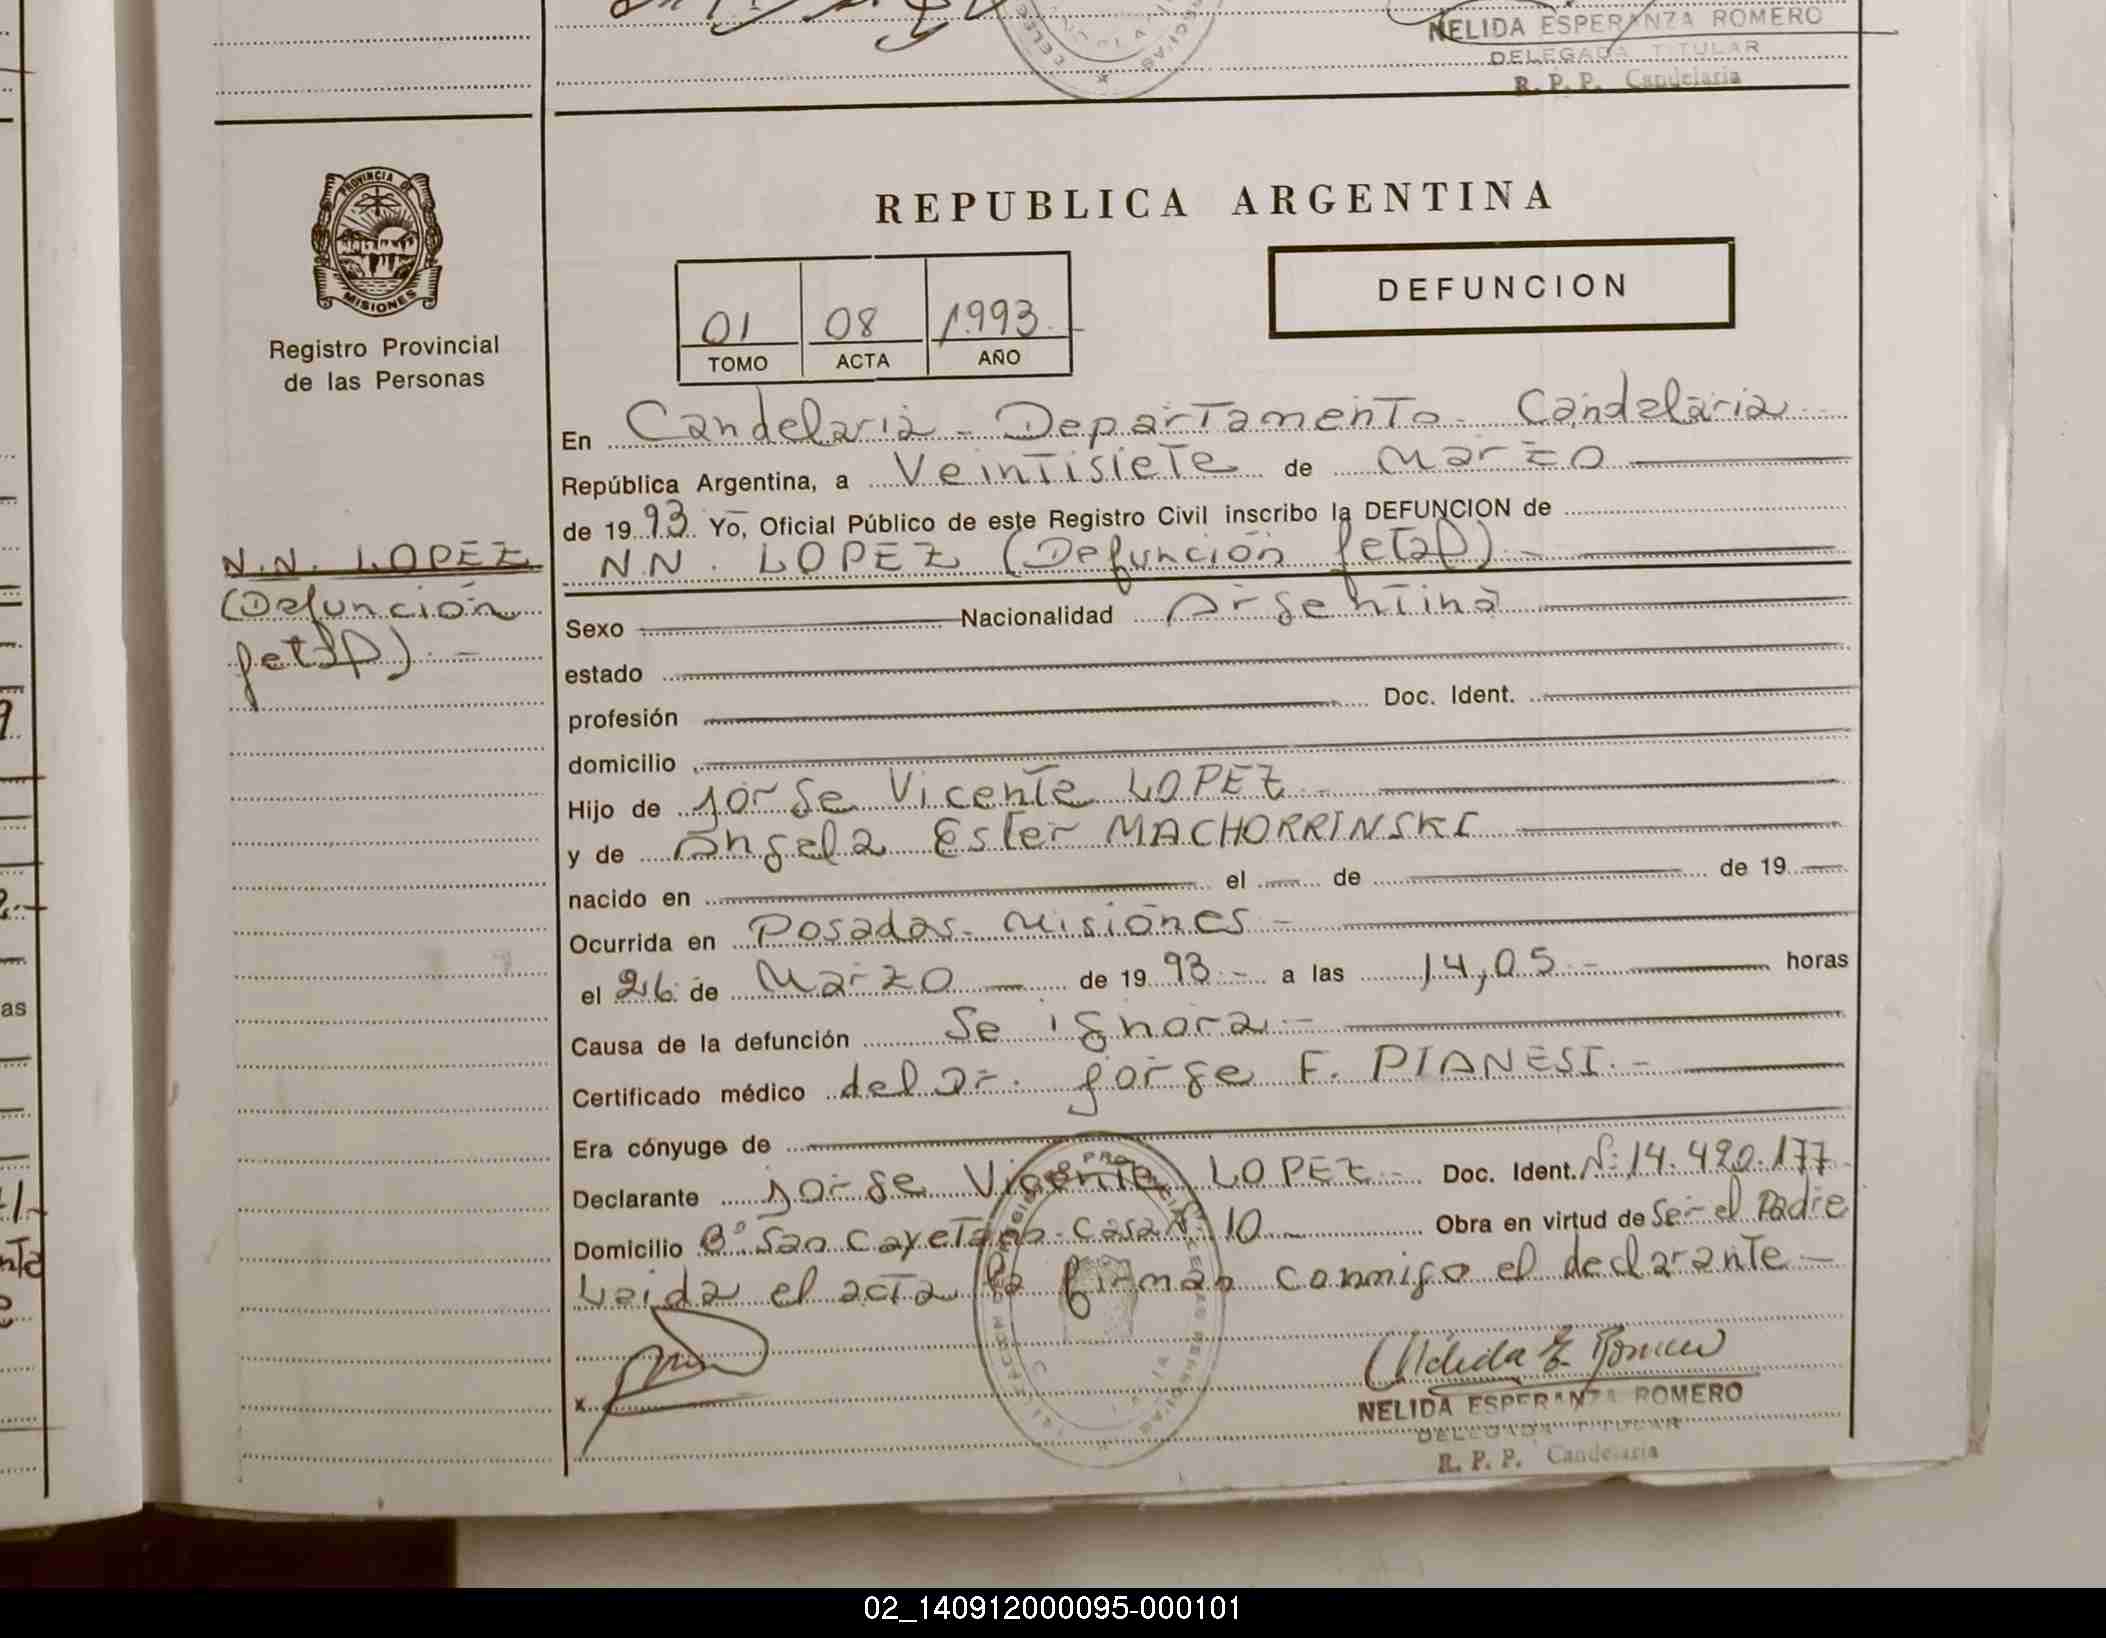 NELIDA ESPERANZA ROMERO
DELEGADA TITULAR
R. P. P. Candelaria
PROVINCIA DE
MISIONES
Registro Provincial
de las Personas
N.N. LOPEZ
(Defunción
fetal).-
REPUBLICA ARGENTINA
01 08 1993.
TOMO ACTA AÑO
DEFUNCION
En Candelaria - Departamento - Candelaria
República Argentina, a Veintisiete de Marzo
de 1993. Yo, Oficial Público de este Registro Civil inscribo la DEFUNCION de
N.N. LOPEZ (Defunción fetal).-
Sexo Nacionalidad Argentina
estado
profesión Doc. Ident.
domicilio
Hijo de Jorge Vicente LOPEZ.-
y de Angela Ester MACHORRINSKI
nacido en el de de 19
Ocurrida en Posadas - Misiones -
el 26 de Marzo de 1993.- a las 14,05.- horas
Causa de la defunción Se ignora.-
Certificado médico del Dr. Jorge F. PIANESI.-
Era cónyuge de
Declarante Jorge Vicente LOPEZ.- Doc. Ident. Nº 14.420.177-
Domicilio Bº San Cayetano - Casa Nº 10 Obra en virtud de Ser el Padre
Leida el acta la firman conmigo el declarante -
x
Nelida E. Romero
NELIDA ESPERANZA ROMERO
DELEGADA TITULAR
R. P. P. Candelaria
02_140912000095-000101